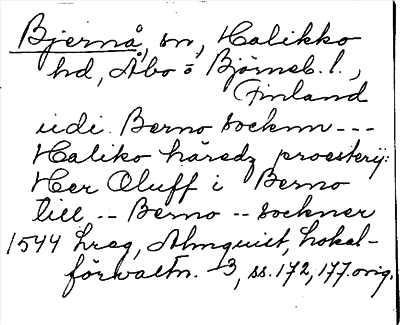 Bjernå, sn, Halikko
hd, Åbo o Björneb. l.,
Finland
udi Berno Socknn ---
Haliko häredz proesterij:
Her Oluff i Berno
till -- Berno -- sockner
1544 hreg, Almquist, Lokal-
förvaltn. 3, ss. 172, 177. orig.